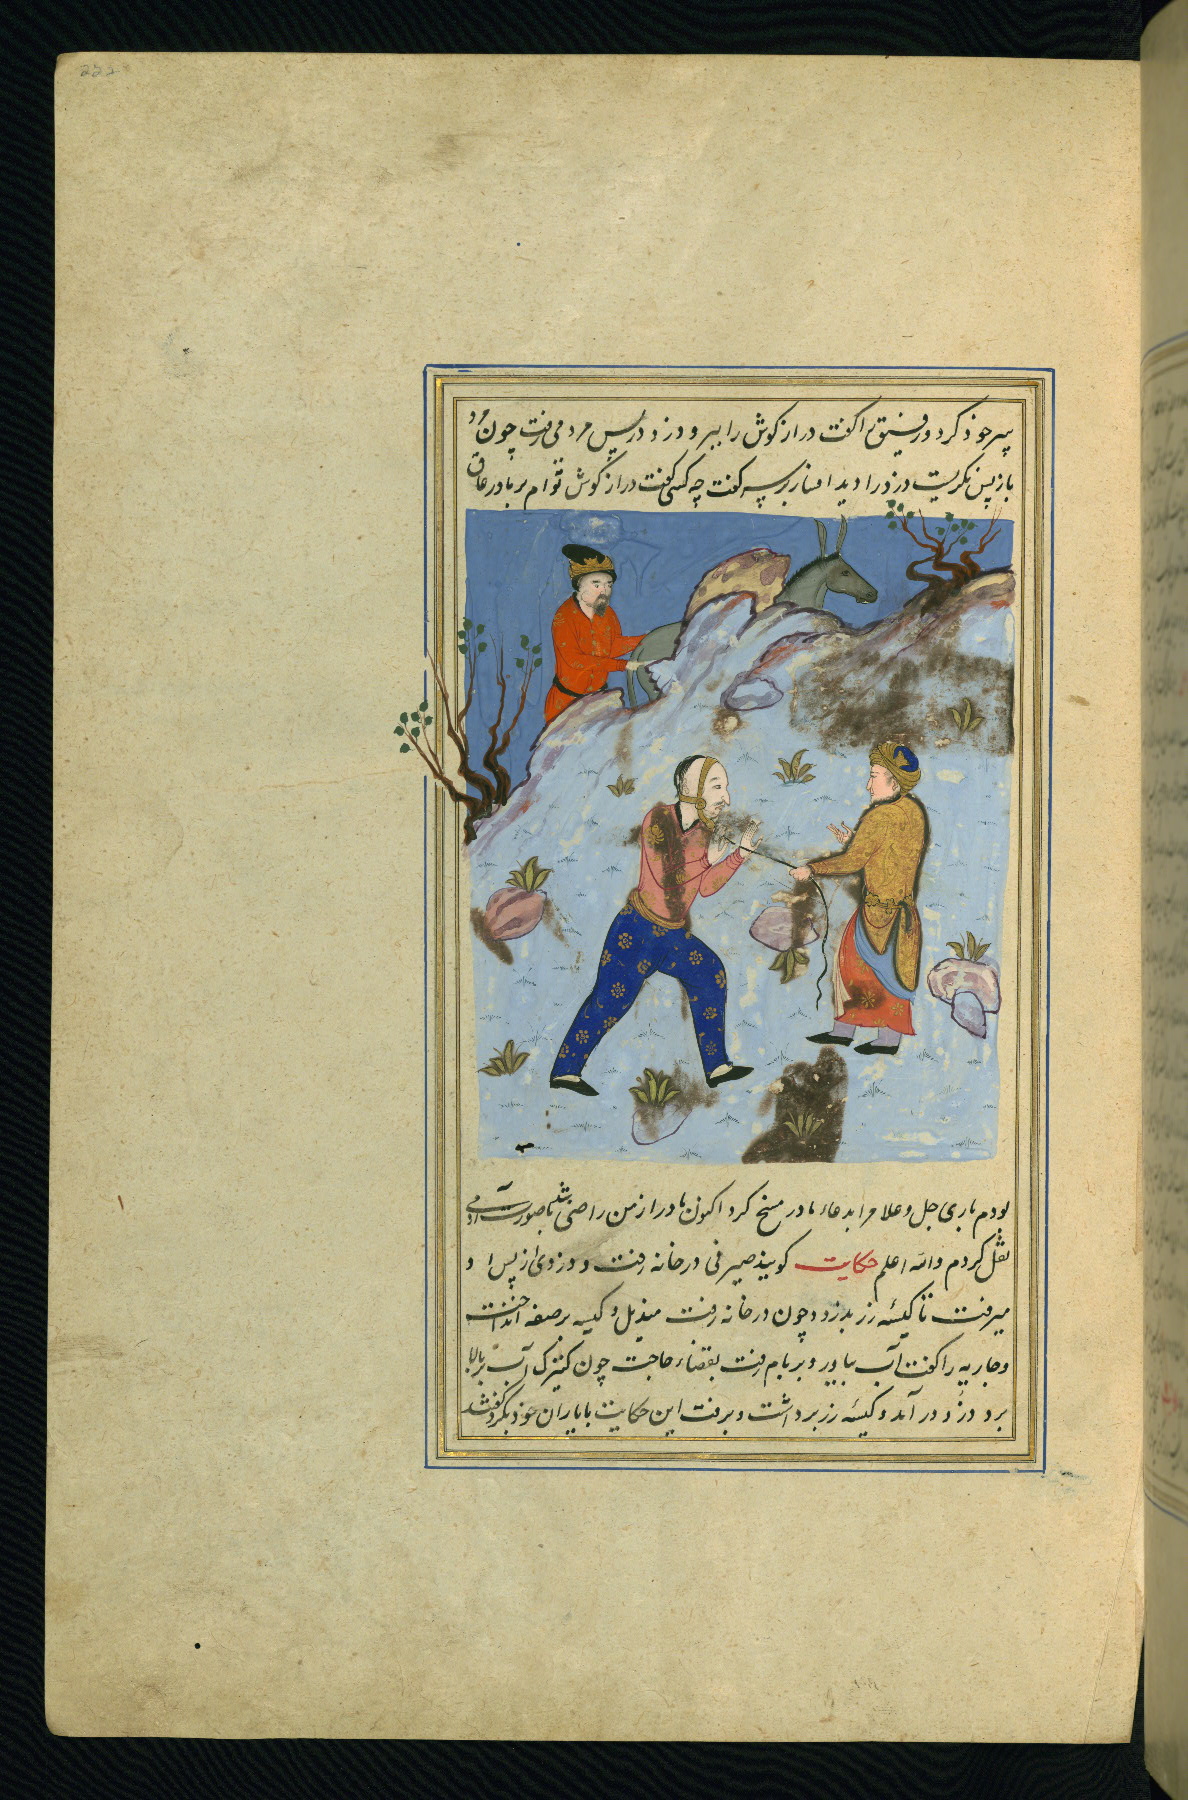 222
بر سر خود کرد و رفیق را گفت دراز گوش را ببر و دزد در پس مرد می رفت چون مرد
باز پس نگریست دزد را دید افسار بر سر گفت چه کسی گفت دراز گوش توام بر مادر عاق
بودم باری جل و علا مرا بدعاء مادر مسخ کرد اکنون مادر از من راضی شد با صورت آدمی
نقل کردم والله اعلم حکایت گویند صیرفی در خانه رفت و دزدی از پس او
میرفت تا کیسه زر بدزدد چون در خانه رفت مندیل و کیسه بر صفه انداخت
و جاریه را گفت آب بیاور و بر بام رفت بقضاء حاجت چون کنیزک آب بر بالا
برد دزد در آمد و کیسه زر برداشت و برفت این حکایت با یاران خود بکرد گفتند